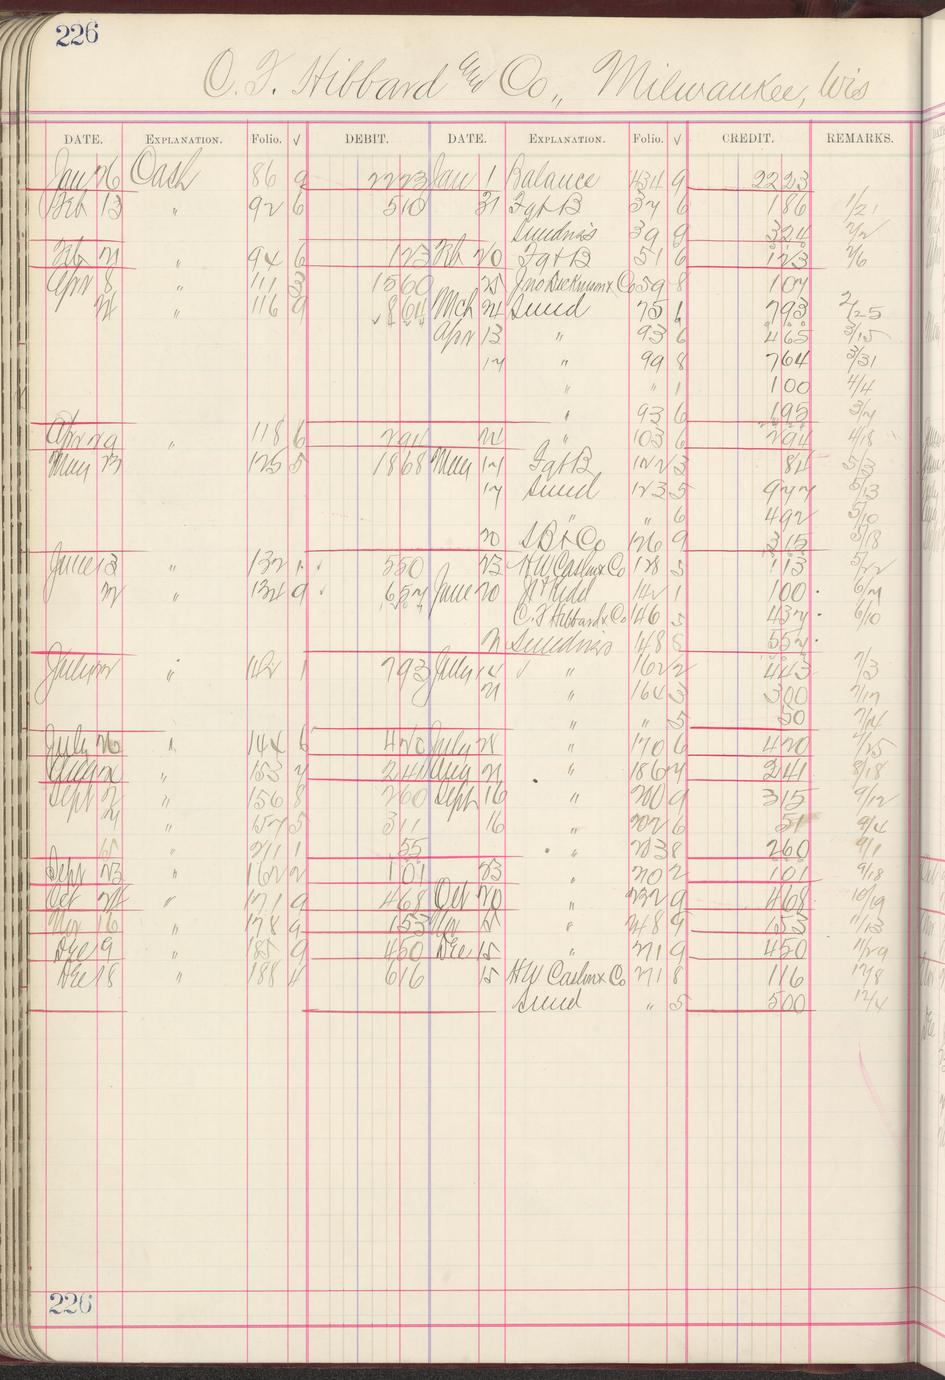 226
C. F. Hibbard and Co., Milwaukee, Wis
DATE. EXPLANATION. Folio. √ DEBIT. DATE. EXPLANATION. Folio. √ CREDIT. REMARKS.
Jan 26 Cash 86 9 2223 Jan 1 Balance 434 9 2223
Feb 13 " 92 6 510 31 Fgt B 37 6 186 1/21
Sundries 39 9 324 2/2
Feb 21 " 94 6 123 Feb 20 Fgt B 51 6 123 2/6
Apr 8 " 111 3 1560 25 59 8 107
24 " 116 9 864 Mch 24 Sund 75 1 793 2/25
Apr 13 " 93 6 465 3/15
17 " 99 8 764 3/31
" " 1 100 4/4
" 93 6 195 3/7
Apr 29 " 118 6 294 24 " 103 6 294 4/18
May 23 " 125 5 1868 May 17 Fgt B 122 3 84 5/3
17 Sund 123 5 977 5/13
" " 6 492 5/10
20 S B & Co 126 9 315 5/18
June 13 " 132 1 550 23 H W Caslon & Co 128 5 113 5/22
22 " 134 9 657 June 20 142 1 100 6/7
C. F. Hibbard & Co 146 5 437 6/10
21 Sundries 148 8 557
July 22 " 142 1 793 July 14 " 162 2 443 7/3
21 " 164 3 300 7/17
" " 5 50 7/14
July 26 " 144 6 420 July 28 " 170 6 420 7/25
Aug 24 " 153 7 241 Aug 21 " 186 7 241 8/18
Sept 2 " 156 8 260 Sept 16 " 200 9 315 9/12
" 157 5 311 16 " 202 6 51 9/4
" 211 1 55 " 203 8 260 9/1
Sept 23 " 162 2 101 23 " 202 101 9/18
Oct 24 " 171 9 468 Oct 20 " 232 9 468 10/19
Nov 16 " 178 9 153 Nov 15 " 248 9 153 11/13
Dec 9 " 185 9 450 Dec 15 " 271 9 450 11/29
Dec 18 " 188 4 616 15 H W Caslon & Co 271 8 116 12/8
Sund " 5 500 12/4
226